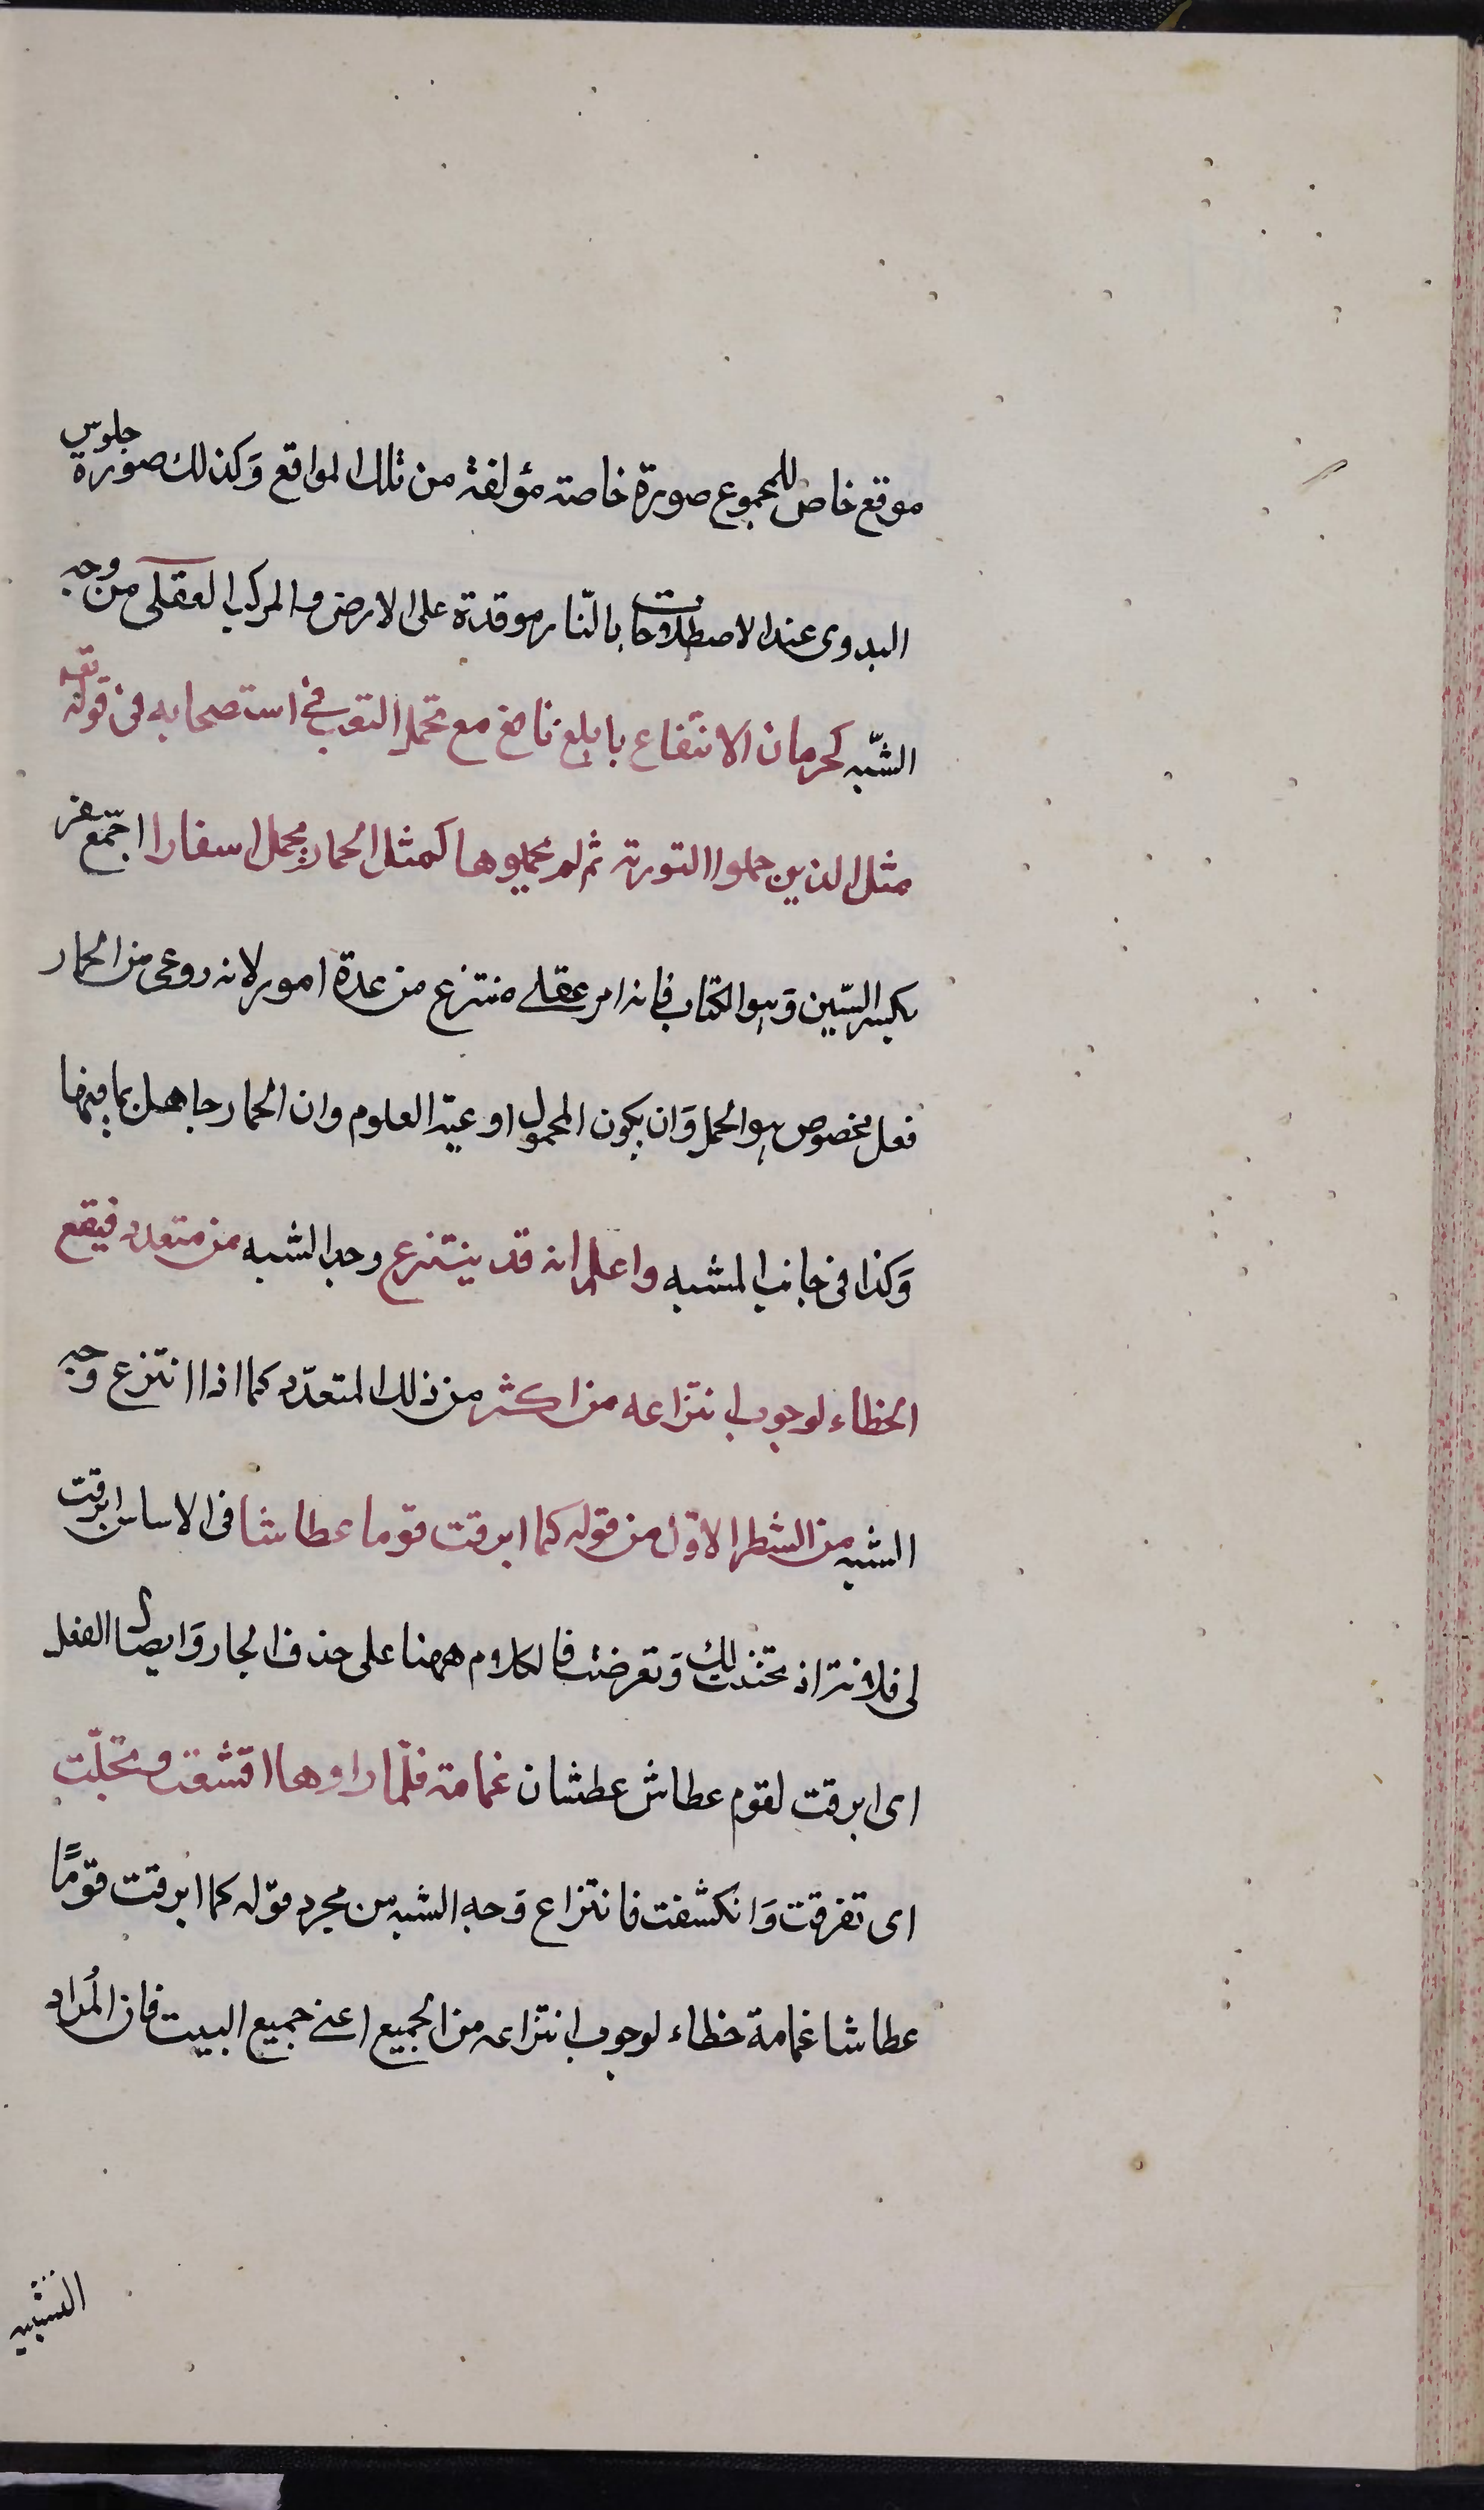 موقع خاص للمجموع صورة خاصة مؤلفة من تلك المواقع وكذلك صورة جلوس
البدوى عند الاصطلاء بالنّار موقدة على الارض والمركب العقلى من وجه
الشّبه كحرمان الانتفاع بابلغ نافع مع تحمل التعب فى استصحابه فى قوله تعه
مثل الذين حملوا التورية ثم لم يحملوها كمثل الحمار يحمل اسفارا جمع سفر
بكسر السّين وهو الكتاب فانه امر عقلى منتزع من عدة امور لانه روعى من الحمار
فعل مخصوص هو الحمل وان يكون المحمول اوعية العلوم وان الحمار جاهل بما فيها
وكذا فى جانب المشبه واعلم انه قد ينتزع وجه الشبه من متعدد فيقع
الخطاء لوجوب انتزاعه من اكثر من ذلك المتعدّد كما اذا انتزع وجه
الشبه من الشطر الاوّل من قوله كما ابرقت قوما عطاشا فى الاساس ابرقت
لى فلانة اذ تحسنت لك وتعرضت فالكلام ههنا على حذف الجار وايصال الفعل
اى ابرقت لقوم عطاش عطشان غمامة فلمّا راوها اقشعت وتجلّت
اى تفرقت وانكشفت فانتزاع وجه الشبه من مجرد قوله كما ابرقت قومًا
عطاشا غمامة خطاء لوجوب انتزاعه من الجميع اعنى جميع البيت فان المُراد
التشبيه